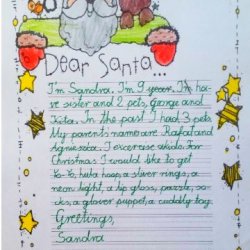 Dear Santa...
I'm Sandra. I'm 9 year. I'm ha-
ve sister and 2 pets, George and
Kita. In the past I had 3 pets
My parents name are Rafał and
Agnieszka. I exercise aikido. For
Christmas I would like to get
Yo-Yo, hula hoop, a silver rings, a
neon light, a lip gloss, puzzle, so-
cks, a glover puppet, a cuddly toy.
Greetings,
Sandra